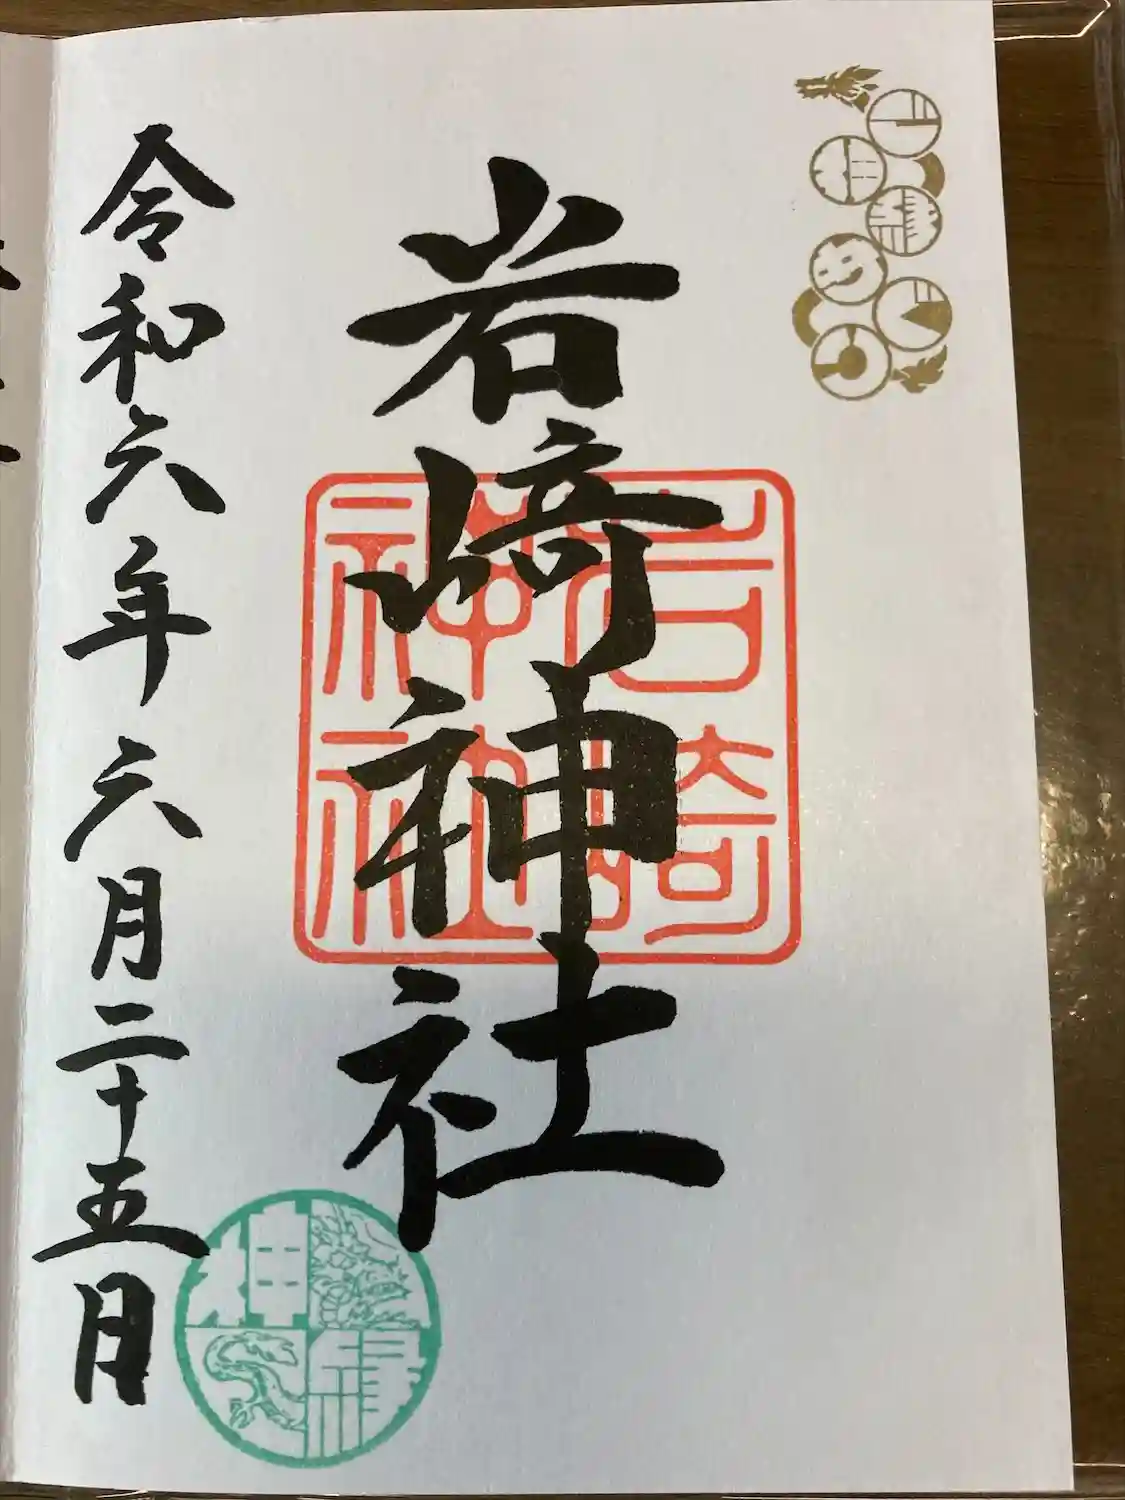 岩崎神社
岩崎
神社
令和六年六月二十五日
神